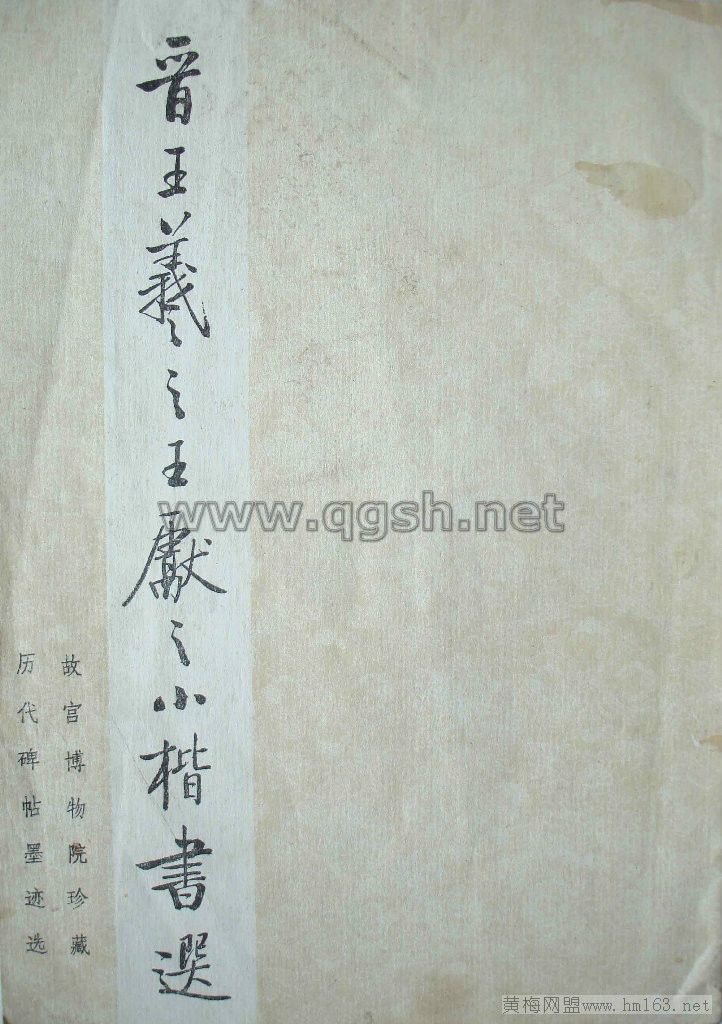 晋王羲之王獻之小楷書選
故宫博物院珍藏
历代碑帖墨迹选
www.qgsh.net
黄梅网盟www.hm163.net